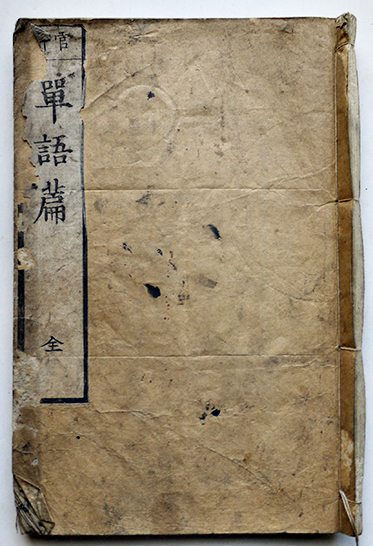 官
單語篇
全